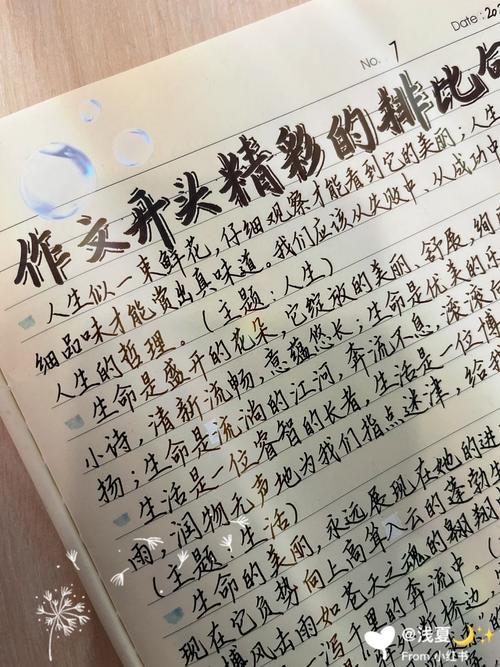 No. 7
Date: 202
作文开头精彩的排比句
人生似一束鲜花，仔细观察才能看到它的美丽；人生
细品味才能赏出真味道。我们应该从失败中、从成功中
人生的哲理。（主题：人生）
生命是盛开的花朵，它绽放的美丽，舒展，绚
小诗，清新流畅，意蕴悠长；生命是优美的乐
扬；生命是流淌的江河，奔流不息，滚滚
生活是一位睿智的长者，生活是一位博
雨，润物无声地为我们指点迷津，给我
（主题：生活）
生命的美丽，永远展现在她的进
现在它负势向上高耸入云的蓬勃
搏风击雨如苍天之魂的翱翔
泻千里的奔流中。（
桥边，
@浅夏🌙✨
From 小红书